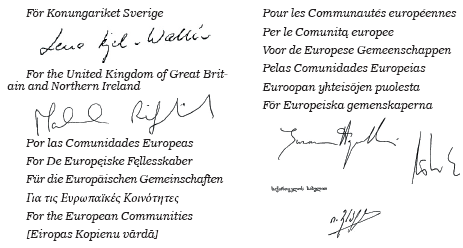 För Konungariket Sverige
For the United Kingdom of Great Brit-
ain and Northern Ireland
Por las Comunidades Europeas
For De Europęiske Fęllesskaber
Für die Europäischen Gemeinschaften
Για τις Ευρωπαϊκές Κοινότητες
For the European Communities
[Eiropas Kopienu vārdā]
Pour les Communautés européennes
Per le Comunitą europee
Voor de Europese Gemeenschappen
Pelas Comunidades Europeias
Euroopan yhteisöjen puolesta
För Europeiska gemenskaperna
საქართველოს სახელით